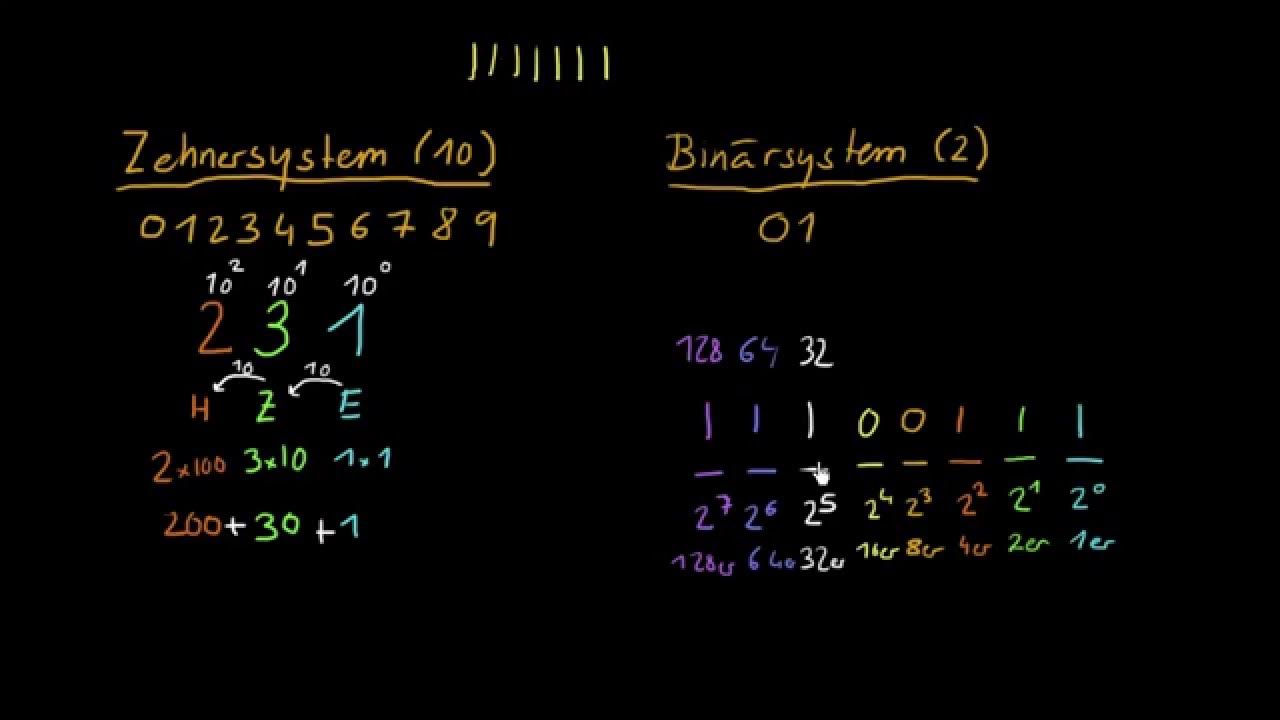 |||||||
Zehnersystem (10)
0 1 2 3 4 5 6 7 8 9
10² 10¹ 10⁰
2 3 1
10 10
H Z E
2×100 3×10 1×1
200 + 30 + 1
Binärsystem (2)
0 1
128 64 32
1 1 1 0 0 1 1 1
2⁷ 2⁶ 2⁵ 2⁴ 2³ 2² 2¹ 2⁰
128er 64er 32er 16er 8er 4er 2er 1er